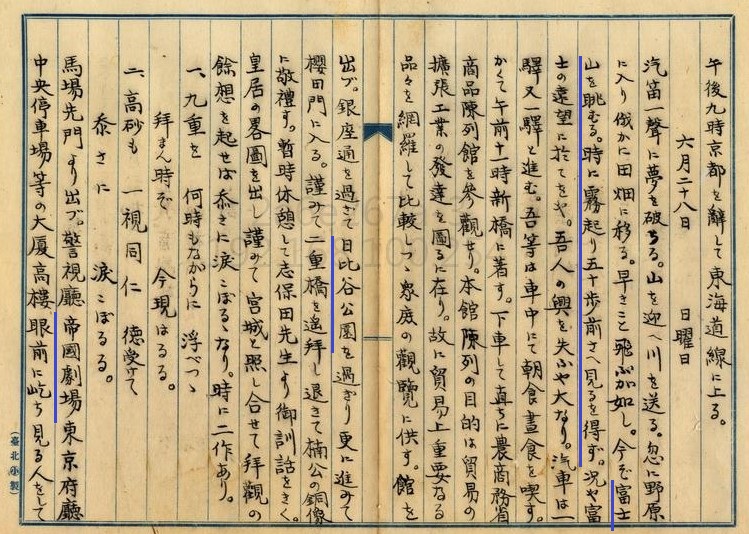 午後九時京都を辭して東海道線に上る。
六月二十八日　日曜日
汽笛一聲に夢を破ちる。山を迎へ川を送る。忽に野原
に入り俄かに田畑に移る。早きこと飛ぶが如し。今ぞ富士
山を眺むる。時に霧起り五十歩前さへ見るを得ず。況や富
士の遠望に於てをや。吾人の興を失ふや大なり。汽車は一
驛又一驛と進む。吾等は車中にて朝食晝食を喫す。
かくて午前十一時新橋に著す。下車して直ちに農商務省
商品陳列館を參觀せり。本館陳列の目的は貿易の
擴張工業の發達を圖るに在り。故に貿易上重要なる
品々を網羅して比較しつゝ衆庶の觀覽に供す。館を
出ヅ。銀座通を過ぎて日比谷公園を過ぎり更に進みて
櫻田門に入る。謹みて二重橋を遙拜し退きて楠公の銅像
に敬禮す。暫時休憩して志保田先生より御訓話をきく。
皇居の畧圖を出し謹みて宮城と照し合せて拜觀の
餘想を起せば忝さに涙こぼるゝなり。時に二作あり。
一、九重を　何時もながらに　浮べつゝ
拜まん時ぞ　今現はるる。
二、高砂も　一視同仁　徳受けて
忝さに　涙こぼるる。
馬場先門より出ヅ。警視廳帝國劇場東京府廳
中央停車場等の大厦高樓眼前に屹ち見る人をして
(臺北小製)